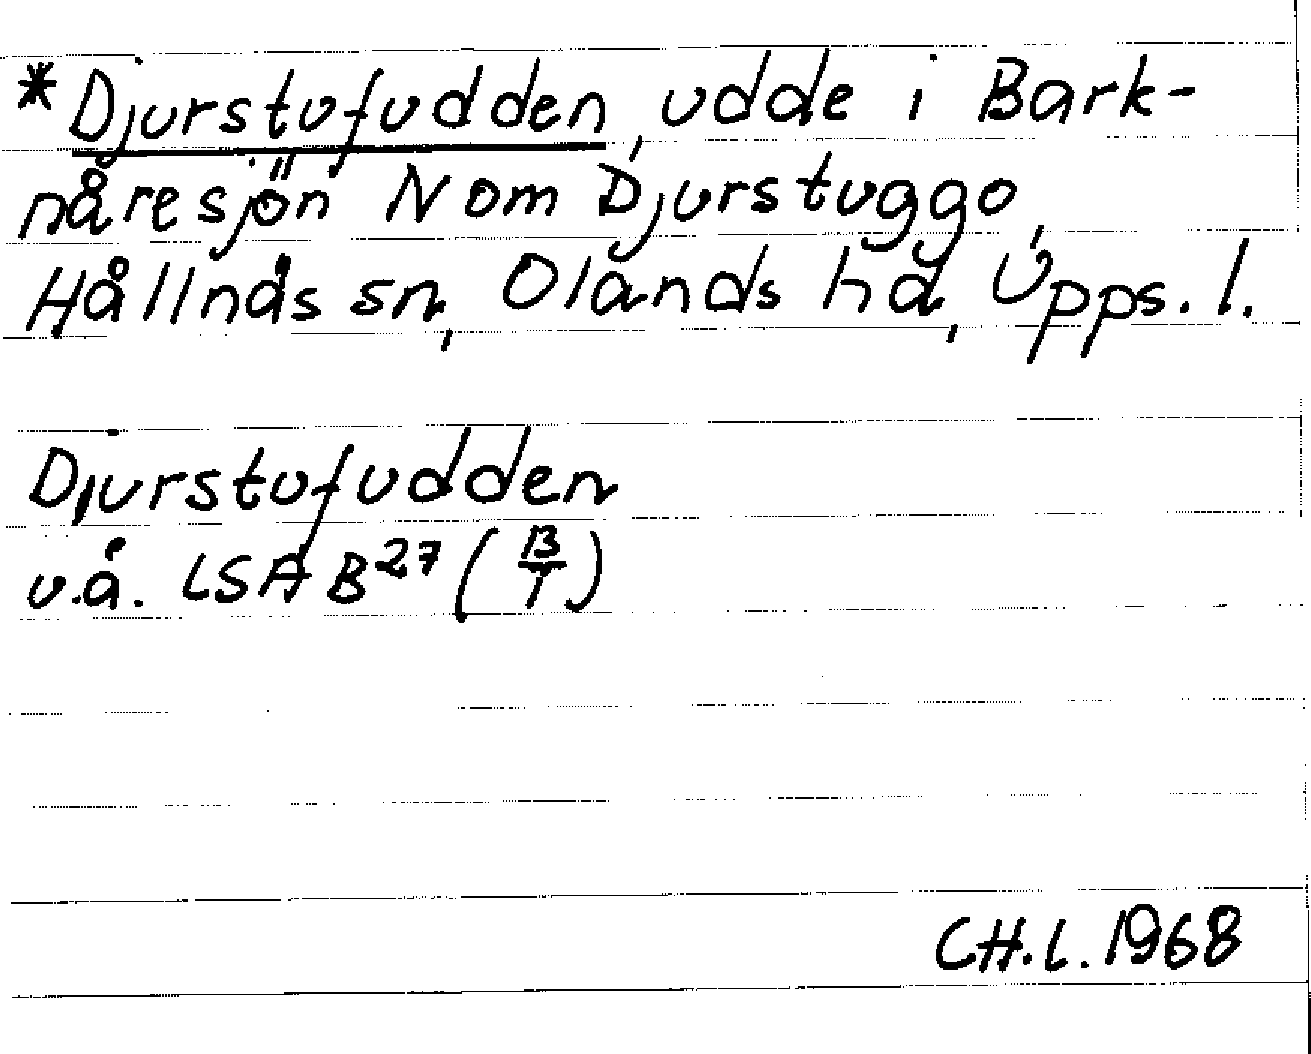 *Djurstufudden, udde i Bark-
nåresjön N om Djurstuggo,
Hållnås sn, Olands hd, Upps. l.
Djurstufudden
u.å. LSA B27 (B/1)
CH.L. 1968